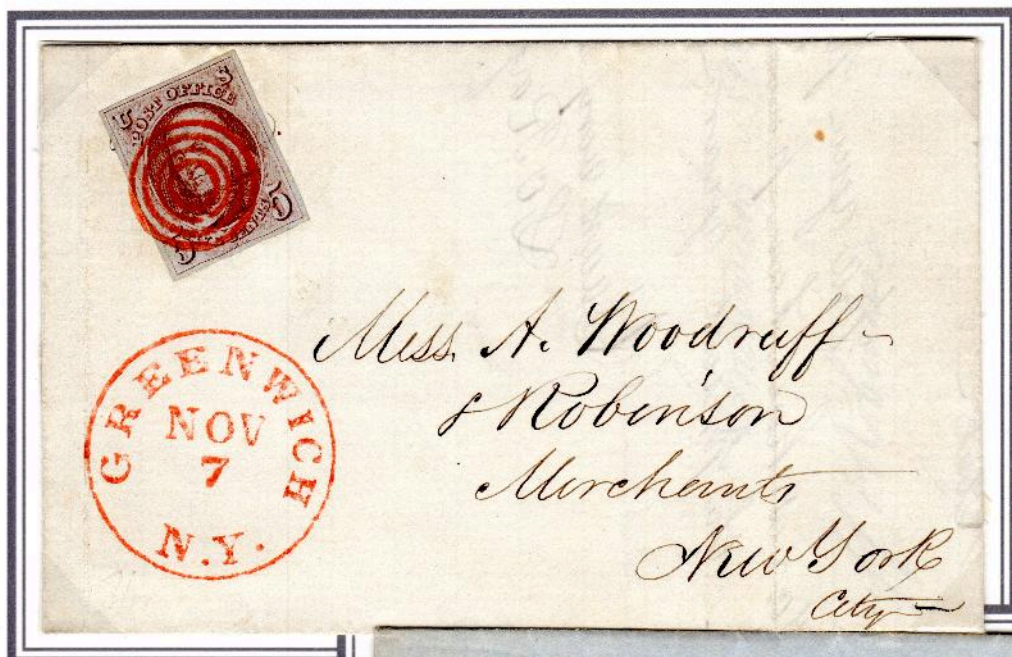 U S
POST OFFICE
5 5
GREENWICH
NOV
7
N.Y.
Mess. A. Woodruff
& Robinson
Merchants
New York
City